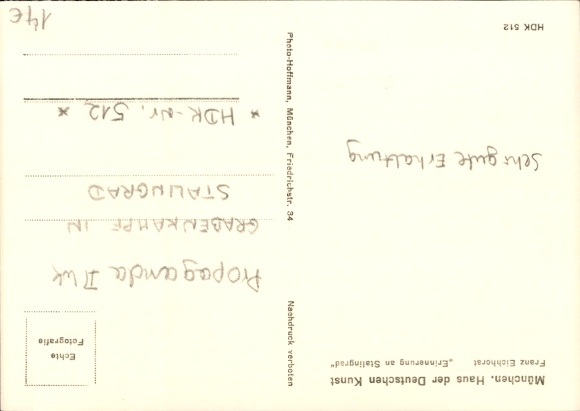 München. Haus der Deutschen Kunst
Franz Eichhorst „Erinnerung an Stalingrad"
Sehr gute Erhaltung
HDK 512
Photo-Hoffmann, München, Friedrichstr. 34
Nachdruck verboten
Echte
Fotografie
Propaganda II WK
GRABENKAMPF IN
STALINGRAD
* HDK-Nr. 512 *
14€